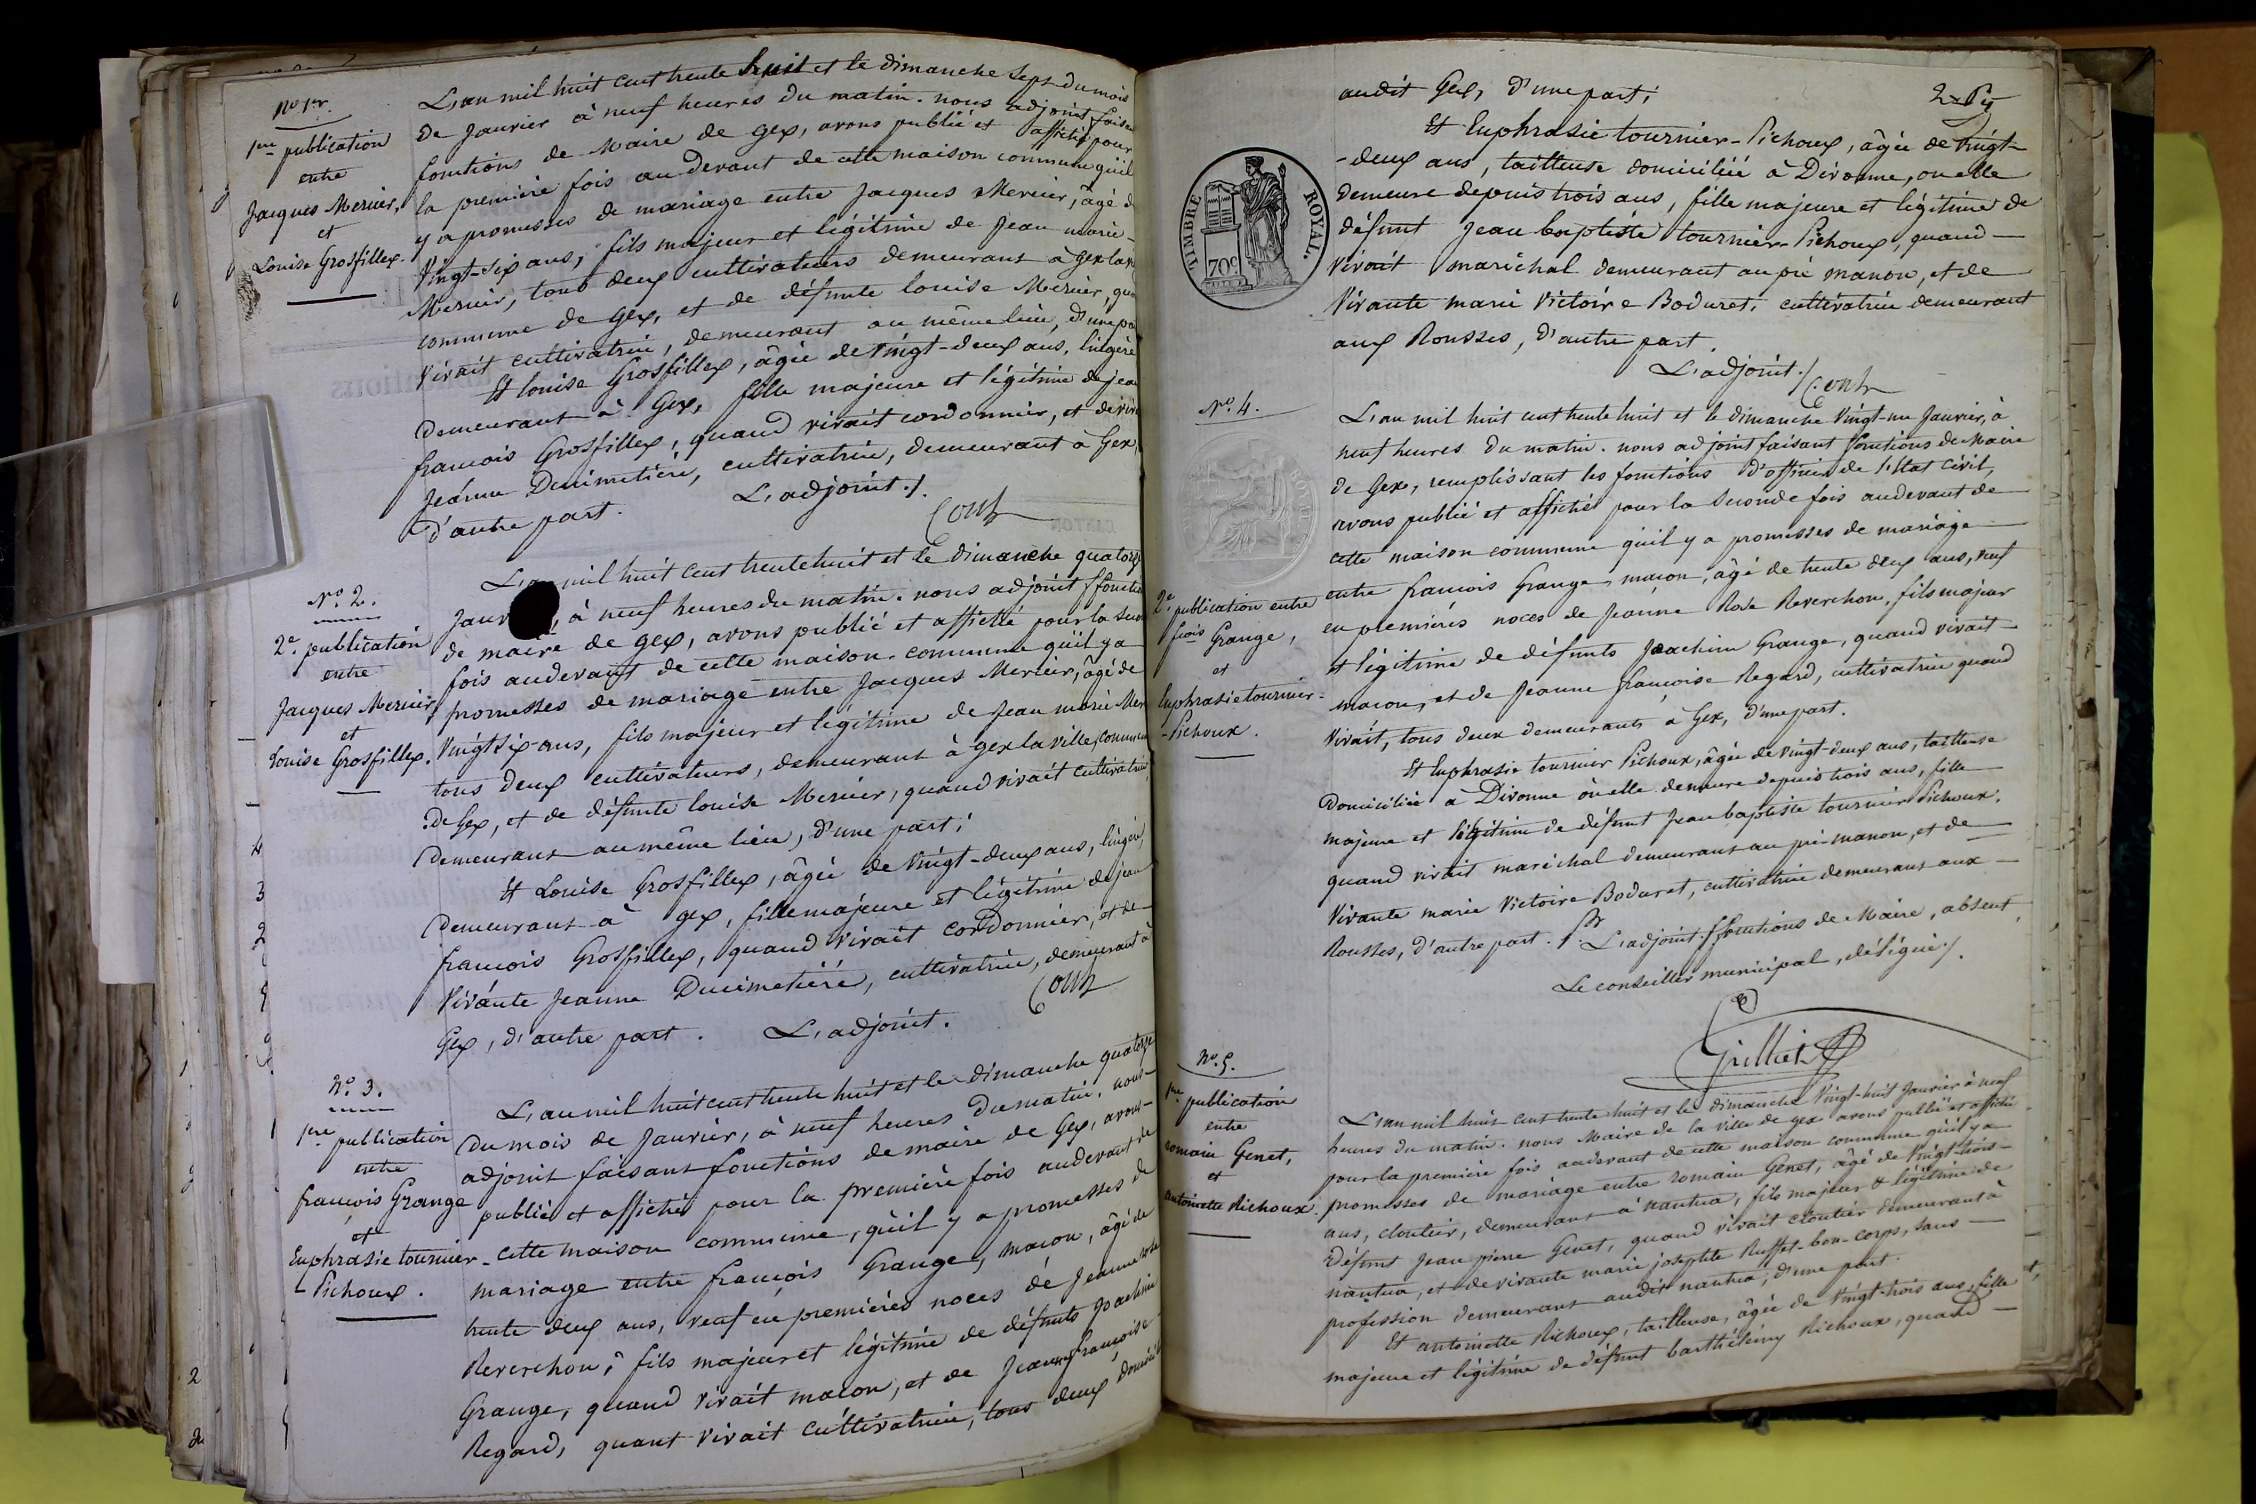 No 1er.
1ere publication
entre
Jacques Mercier,
et
Louise Grosfillex.
L'an mil huit cent trente huit et le dimanche sept du mois
de Janvier à neuf heures du matin. nous adjoint faisa
fonctions de Maire de Gex, avons publié et affiché pour
la premiere fois au devant de cette maison commune qu'il
y a promesses de mariage entre Jacques Mercier, âgé d
Vingt-six ans, fils majeur et légitime de Jean marie
Mercier, tous deux cultivateurs demeurant à gex la vi
commune de Gex, et de défunte Louise Mercier, qua
vivait cultivatrice, demeurant au même lieu, d'une pa
Et Louise Grosfillex, âgée de vingt-deux ans, lingère
demeurant à Gex, fille majeure et légitime de jean
francois Grosfillex, quand vivait cordonnier, et de viva
Jeanne Ducimetière, cultivatrice, demeurant à Gex,
d'autre part. L'adjoint ./.
No. 2.
2e. publication
entre
Jacques Mercier,
et
Louise Grosfillex.
L'an mil huit cent trente huit et le dimanche quatorze
Janv , à neuf heures du matin. nous adjoint ffonctio
de maire de Gex, avons publié et affiché pour la sec
fois audevant de cette maison commune qu'il y a
promesses de mariage entre Jacques Mercier, âgé de
Vingt six ans, fils majeur et légitime de Jean marie Mer
tous deux cultivateurs, demeurant à gex la ville, commune
de Gex, et de défunte louise Mercier, quand vivait cultivatrice,
demeurant au même lieu, d'une part;
Et Louise Grosfillex, âgée de Vingt-deux ans, lingère,
demeurant à gex, fille majeure et légitime de jean
francois Grosfillex, quand vivait cordonnier, et de
Vivante Jeanne Ducimetière, cultivatrice, demeurant à
Gex, d'autre part. L'adjoint.
No. 3.
1ere publication
entre
françois Grange
et
Euphrasie tournier-
Pichoux.
L'an mil huit cent trente huit et le dimanche quatorze
du mois de Janvier, à neuf heures du matin, nous
adjoint faisant fonctions de maire de Gex, avons
publié et affiché pour la premiere fois audevant de
cette maison commune, qu'il y a promesses de
mariage entre françois Grange, macon, âgé de
trente deux ans, veuf en premières noces de Jeanne rose
Reverchon, fils majeur et légitime de défunts Joachim
Grange, quand vivait macon, et de Jeanne françoise
Regard, quant vivait cultivatrice, tous deux domicil
audit Gex, d'une part;
Et Euphrasie tournier-Pichoux, âgée de vingt-
-deux ans, tailleuse domiciliée à Divonne, ou elle
demeure depuis trois ans, fille majeure et légitime de
défunt Jean baptiste tournier-Pichoux, quand
vivait maréchal demeurant au pré manon, et de
Vivante marie Victoire Boduret, cultivatrice demeurant
aux Rousses, d'autre part.
L'adjoint ./
TIMBRE ROYAL.
70c
No. 4.
2e. publication entre
fcois Grange,
et
Euphrasie tournier-
-Pichoux.
L'an mil huit cent trente huit et le dimanche vingt-un Janvier, à
neuf heures du matin. nous adjoint faisant fonctions de Maire
de Gex, remplissant les fonctions d'officier de l'Etat civil,
avons publié et affiché pour la seconde fois audevant de
cette maison commune qu'il y a promesses de mariage
entre francois Grange, macon, âgé de trente deux ans, veuf
en premières noces de Jeanne Rose Reverchon, fils majeur
et légitime de défunts Joachim Grange, quand vivait
macon, et de Jeanne françoise Regard, cultivatrice quand
vivait, tous deux demeurants à Gex, d'une part.
Et Euphrasie tournier Pichoux, âgée de vingt-deux ans, tailleuse
domiciliée à Divonne où elle demeure depuis trois ans, fille
majeure et légitime de défunt Jean baptiste tournier Pichoux,
quand vivait maréchal demeurant au pré-manon, et de
Vivante marie Victoire Boduret, cultivatrice demeurant aux
Rousses, d'autre part. Pr. L'adjoint ffonctions de Maire, absent,
Le conseiller municipal, délégué ./.
Grilliet
No. 5.
1ere publication
entre
romain Genet,
et
antoinette Richoux.
L'an mil huit cent trente huit et le dimanche Vingt-huit Janvier à neuf
heures du matin. nous Maire de la ville de gex avons publié et affiché
pour la premiere fois audevant de cette maison commune qu'il y a
promesses de mariage entre romain Genet, âgé de Vingt-trois
ans, cloutier, demeurant à nantua, fils majeur & légitime de
défunt Jean pierre Genet, quand vivait cloutier demeurant à
nantua, et de vivante marie josephte Ruffet-bon-corps, sans
profession demeurant audit nantua, d'une part.
Et antoinette Richoux, tailleuse, âgée de Vingt-trois ans, fille
majeure et légitime de défunt barthélemy Richoux, quand